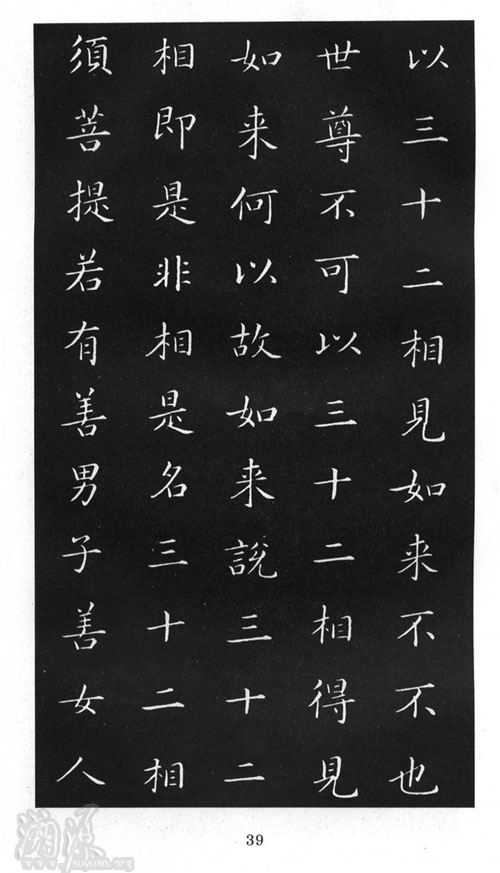 以三十二相見如来不不也
世尊不可以三十二相得見
如来何以故如来說三十二
相即是非相是名三十二相
須菩提若有善男子善女人
39
溯源
suyuan.org